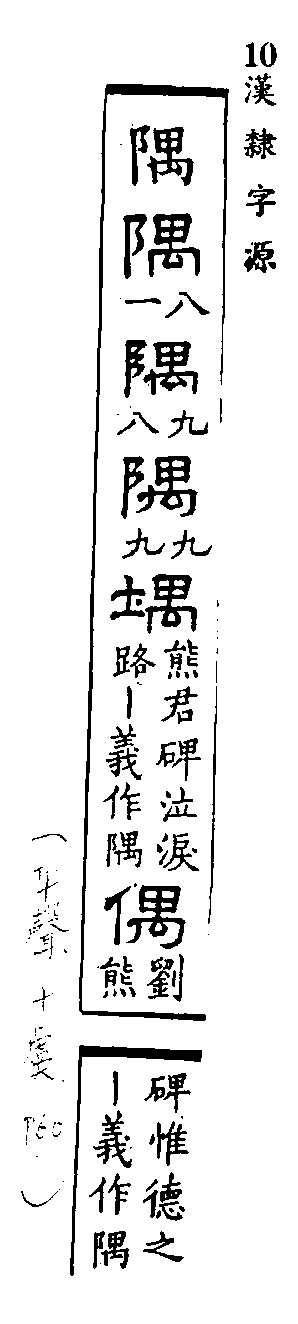 10漢隸字源
隅
隅
八一
隅
九八
隅
九九
堣
熊君碑泣淚
路丨義作隅
偶
劉
熊
碑惟德之
丨義作隅
(平聲十虞 P60)